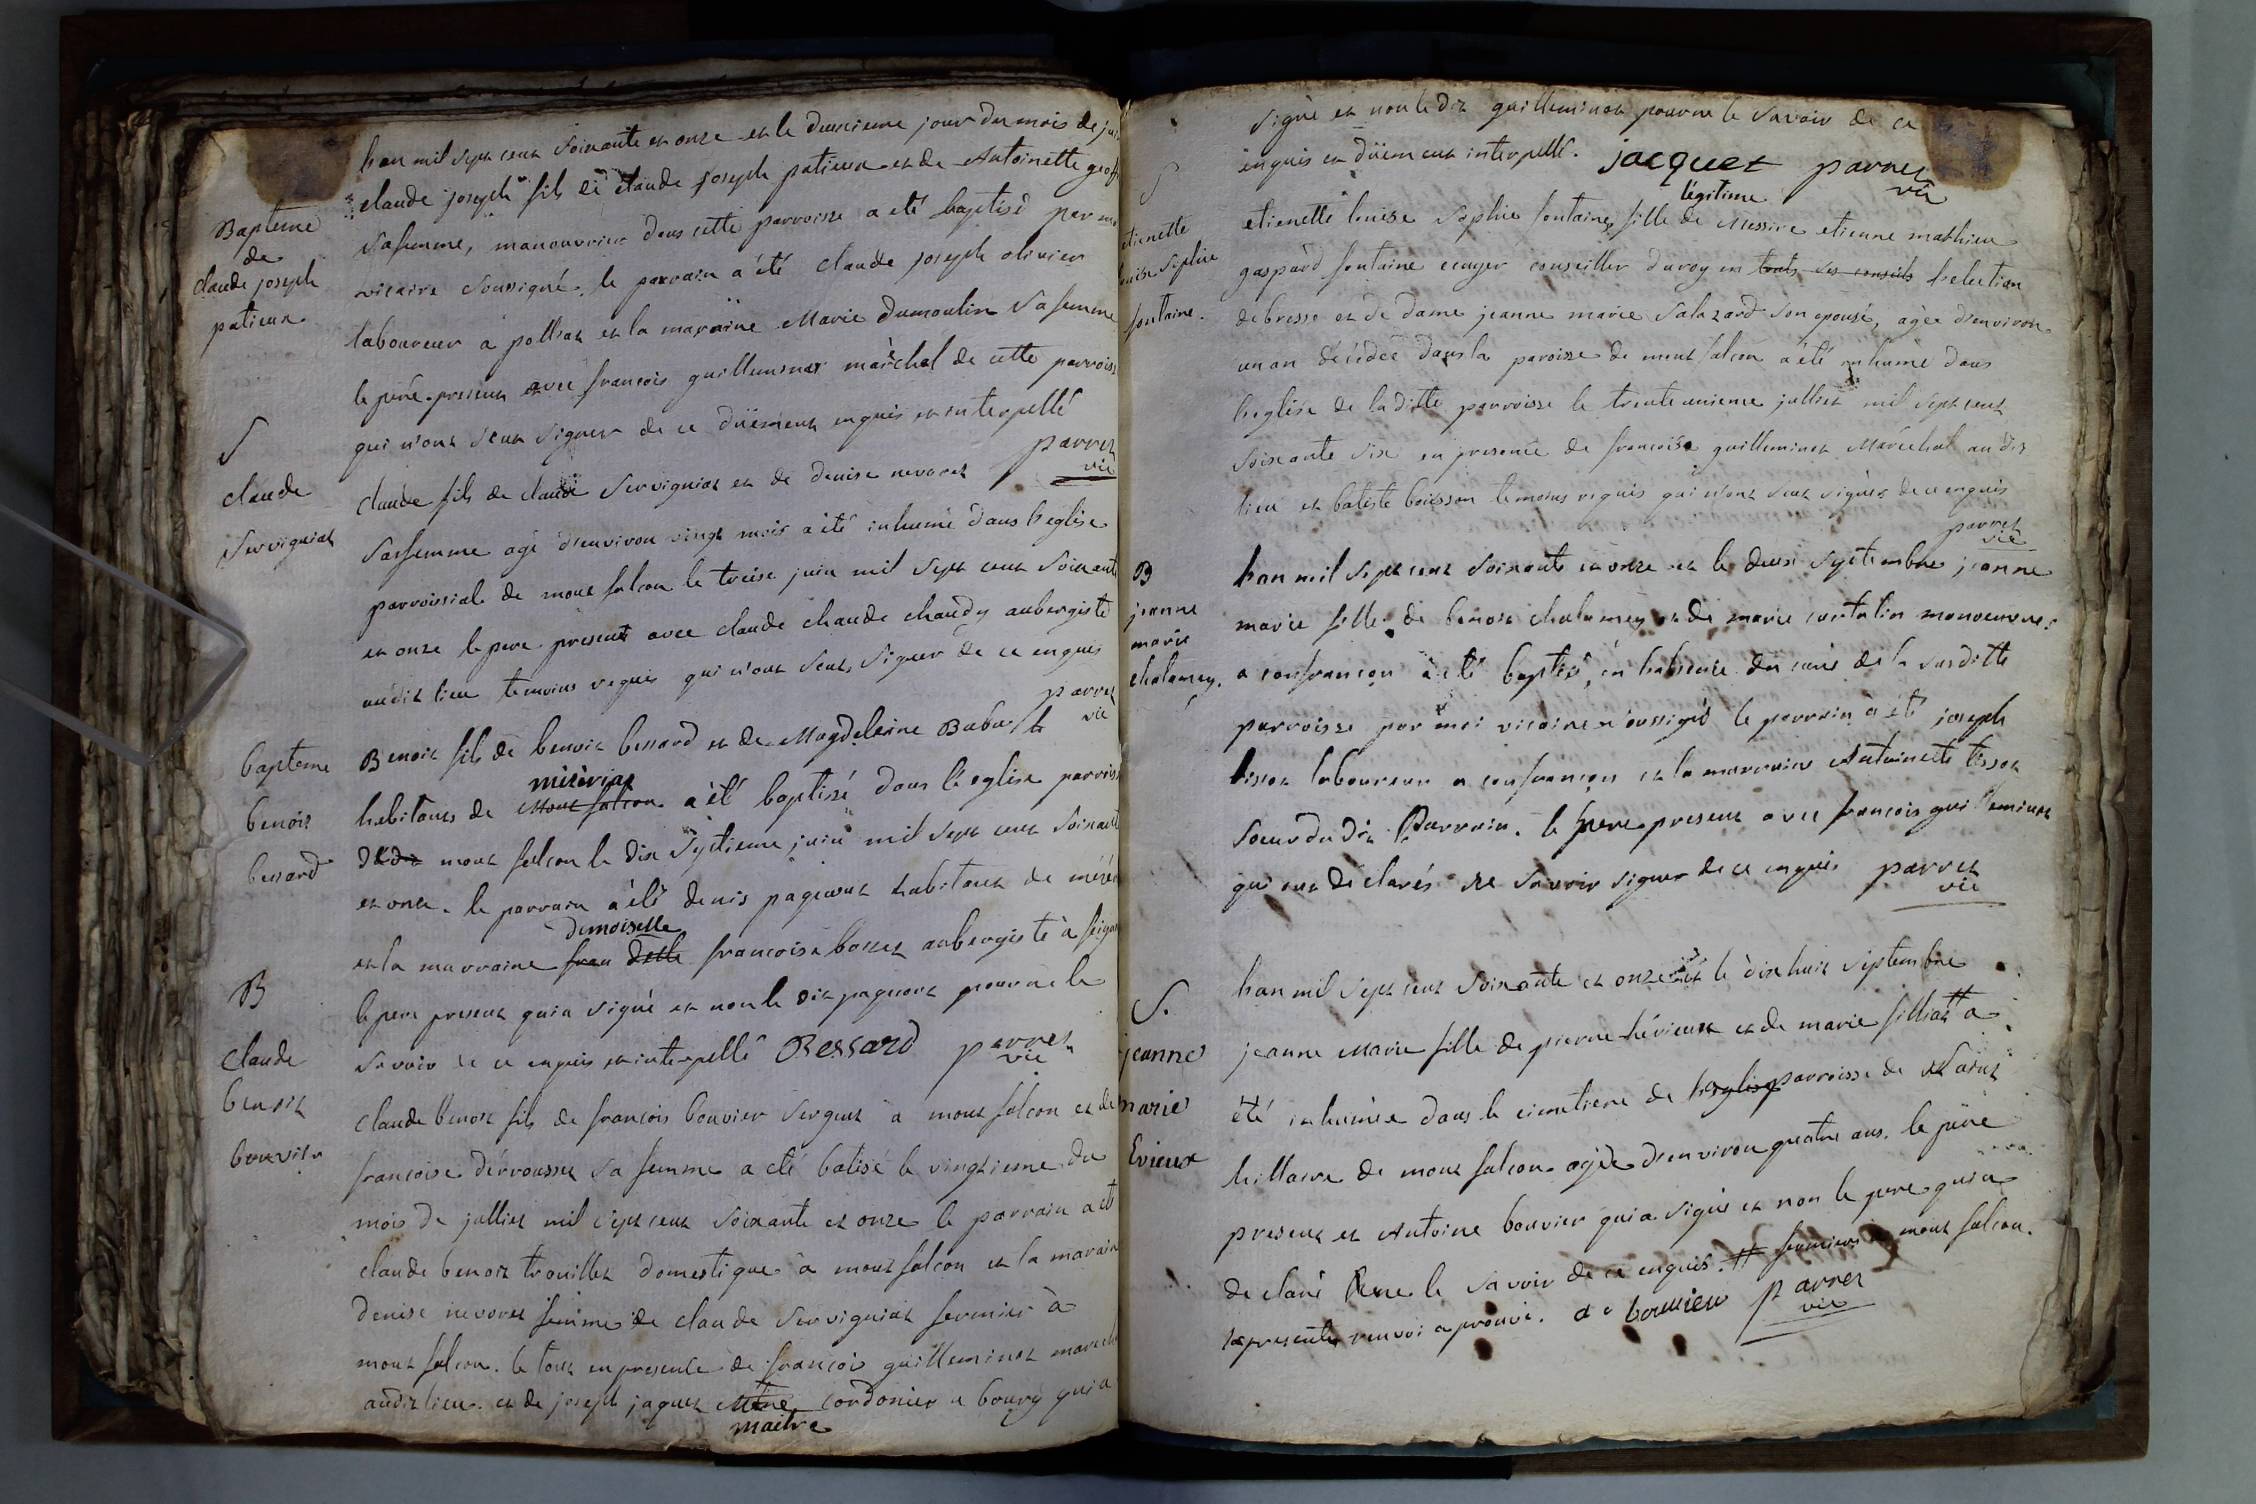 Bapteme
de
claude joseph
patieux
han mil sept cent soixante et onze et le deuxieme jour du mois de
claude joseph fils de claude joseph patieux et de Antoinette
sa femme, manouvrier dans cette parroisse a eté baptisé par
vicaire soussigné, le parrain a été claude joseph olivier
laboureur a polliat et la maraine Marie dumoulin sa femme
le père present avec francois guilleminot maréchal de cette
qui n'ont sçut signer de ce düement enquis et interpellé
parret
vic
S
claude
Servigniat
claude fils de claude Servigniat et de denise nevoret
sa femme agé d'environ vingt mois a été inhumé dans l'eglise
parroissial de mont falcon le treise juin mil sept cent soixante
et onze le pere present avec claude claude chaudy aubergiste
audit lieu temoins requis qui n'ont sçut signer de ce enquis
parret
vic
bapteme
benoit
bessard
Benoit fils de benoit bessard et de Magdeleine
mizériat
habitants de Mont falcon a été baptisé dans l'eglise
mont falcon le dix septieme juin mil sept cent
et onze. le parrain a été denis pagneux habitant de
demoiselle
et la marraine fran delle francoise bosset aubergiste à
le pere present qui a signé et non le dit pagneux pour ne le
savoir de ce enquis et interpellé Bessard parret
vic
B
claude
benoit
bouvier
claude benoit fils de francois bouvier sergent a mont falcon et de
francoise dérrousset sa femme a eté batisé le vingtieme du
mois de julliet mil sept cent soixante et onze le parrain a eté
claude benoit trouillet domestique a mont falcon et la
denise nevoret femme de claude Servigniat fermier à
mont falcon. le tout en presence de francois guilleminot
audit lieu et de joseph jaquet cordonier a bourg qui a
maitre
signé et non le dit guilleminot pour ne le savoir de ce
enquis et düement interpellé. jacquet parret
vic
S
etienette
louise sophie
fontaine.
légitime
etienette louise Sophie fontaine, fille de Messire etienne mathieu
gaspàrd fontaine ecuyer conseiller du roy en touts ses conseils l'election
de bresse et de dame jeanne marie Salazard son epouse, agée d'environ
un an décédée dans la paroisse de mont falcon a été inhumé dans
l'eglise de la ditte parroisse le trente unieme julliet mil sept cent
soixante dix en presence de francoise guilleminot Maréchal au dit
lieu et batiste boisson temoins requis qui n'ont sçut signer de ce enquis
parret
vic
B
jeanne
marie
chalamey.
han mil sept cent soixante et onze et le deux septembre jeanne
marie fille de benoit chalamey et de marie manouvrier
a confrançon a eté baptisé, en l'absence du curé de la susditte
parroisse par moi vicaire soussigné le parrain à été joseph
tissot laboureur a confrançon et la marraine Antoinette tissot
soeur du dit Parrain. le pere present avec francois guilleminot
qui ont déclarés ne savoir signer de ce enquis parret
vic
S.
jeanne
marie
Evieux
han mil sept cent soixante et onze et le dix huit septembre
jeanne Marie fille de pierre hévieux et de marie filliat # a
été inhumée dans le cimetiere de l'eglise parroisse de saint
hillaire de mont falcon agée d'environ quatre ans. le père
present et Antoine bouvier qui a signé et non le pere qui a
declaré ne le savoir de ce enquis. # fermiers a mont falcon.
le present renvoi aprouvé. a bouvier parret
vic